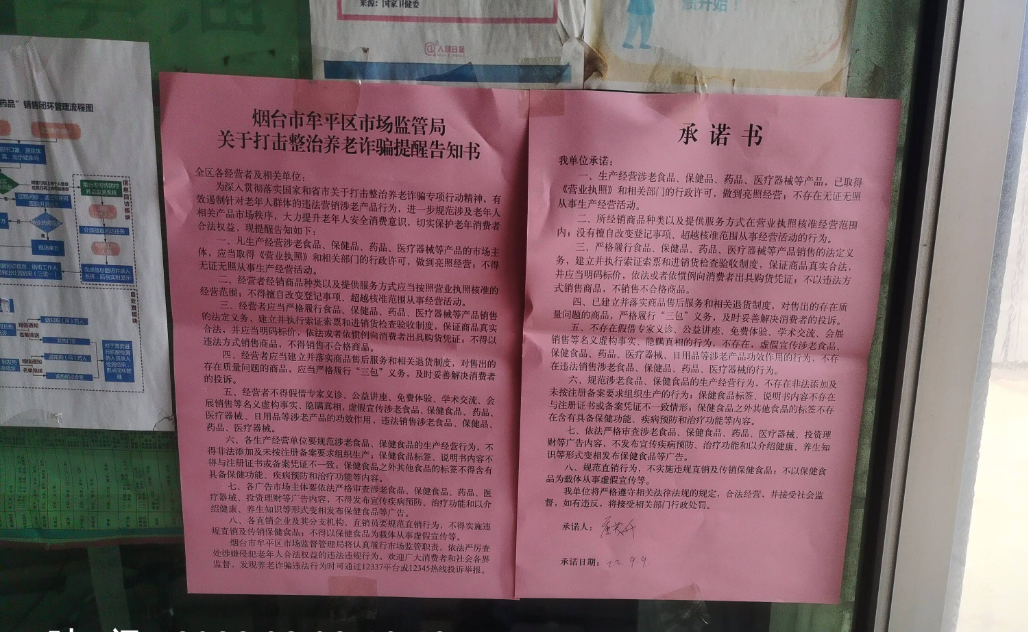 来源：国家卫健委
@人民日报
药品"销售闭环管理流程图
烟台市牟平区市场监管局
关于打击整治养老诈骗提醒告知书
全区各经营者及相关单位：
为深入贯彻落实国家和省市关于打击整治养老诈骗专项行动精神，有
效遏制针对老年人群体的违法营销涉老产品行为，进一步规范涉及老年人
相关产品市场秩序，大力提升老年人安全消费意识，切实保护老年消费者
合法权益，现提醒告知如下：
一、凡生产经营涉老食品、保健品、药品、医疗器械等产品的市场主
体，应当取得《营业执照》和相关部门的行政许可，做到亮照经营，不得
无证无照从事生产经营活动。
二、经营者经销商品种类以及提供服务方式应当按照营业执照核准的
经营范围；不得擅自改变登记事项、超越核准范围从事经营活动。
三、经营者应当严格履行食品、保健品、药品、医疗器械等产品销售
的法定义务，建立并执行索证索票和进销货检查验收制度，保证商品真实
合法，并应当明码标价，依法或者依惯例向消费者出具购货凭证，不得以
违法方式销售商品，不得销售不合格商品。
四、经营者应当建立并落实商品售后服务和相关退货制度，对售出的
存在质量问题的商品，应当严格履行"三包"义务，及时妥善解决消费者
的投诉。
五、经营者不得假借专家义诊、公益讲座、免费体验、学术交流、会
展销售等名义虚构事实、隐瞒真相，虚假宣传涉老食品、保健食品、药品、
医疗器械、日用品等涉老产品的功效作用，违法销售涉老食品、保健品、
药品、医疗器械。
六、各生产经营单位要规范涉老食品、保健食品的生产经营行为，不
得非法添加及未按注册备案要求组织生产；保健食品标签、说明书内容不
得与注册证书或备案凭证不一致；保健食品之外其他食品的标签不得含有
具备保健功能、疾病预防和治疗功能等内容。
七、各广告市场主体要依法严格审查涉老食品、保健食品、药品、医
疗器械、投资理财等广告内容，不得发布宣传疾病预防、治疗功能和以介
绍健康、养生知识等形式变相发布保健食品等广告。
八、各直销企业及其分支机构、直销员要规范直销行为，不得实施违
规直销及传销保健食品；不得以保健食品为载体从事虚假宣传等。
烟台市牟平区市场监督管理局将认真履行市场监管职责，依法严厉查
处涉嫌侵犯老年人合法权益的违法违规行为。欢迎广大消费者和社会各界
监督，发现养老诈骗违法行为时可通过12337平台或12345热线投诉举报。
承诺书
我单位承诺：
一、生产经营涉老食品、保健品、药品、医疗器械等产品，已取得
《营业执照》和相关部门的行政许可，做到亮照经营；不存在无证无照
从事生产经营活动。
二、所经销商品种类以及提供服务方式在营业执照核准经营范围
内；没有擅自改变登记事项、超越核准范围从事经营活动的行为。
三、严格履行食品、保健品、药品、医疗器械等产品销售的法定义
务，建立并执行索证索票和进销货检查验收制度，保证商品真实合法，
并应当明码标价，依法或者依惯例向消费者出具购货凭证；不以违法方
式销售商品，不销售不合格商品。
四、已建立并落实商品售后服务和相关退货制度，对售出的存在质
量问题的商品，严格履行"三包"义务，及时妥善解决消费者的投诉。
五、不存在假借专家义诊、公益讲座、免费体验、学术交流、会展
销售等名义虚构事实、隐瞒真相的行为，不存在，虚假宣传涉老食品、
保健食品、药品、医疗器械、日用品等涉老产品功效作用的行为，不存
在违法销售涉老食品、保健品、药品、医疗器械的行为。
六、规范涉老食品、保健食品的生产经营行为，不存在非法添加及
未按注册备案要求组织生产的行为；保健食品标签、说明书内容不存在
与注册证书或备案凭证不一致情形；保健食品之外其他食品的标签不存
在含有具备保健功能、疾病预防和治疗功能等内容。
七、依法严格审查涉老食品、保健食品、药品、医疗器械、投资理
财等广告内容，不发布宣传疾病预防、治疗功能和以介绍健康、养生知
识等形式变相发布保健食品等广告。
八、规范直销行为，不实施违规直销及传销保健食品；不以保健食
品为载体从事虚假宣传等。
我单位将严格遵守相关法律法规的规定，合法经营，并接受社会监
督，如有违反，将接受相关部门行政处罚。
承诺人：
承诺日期：